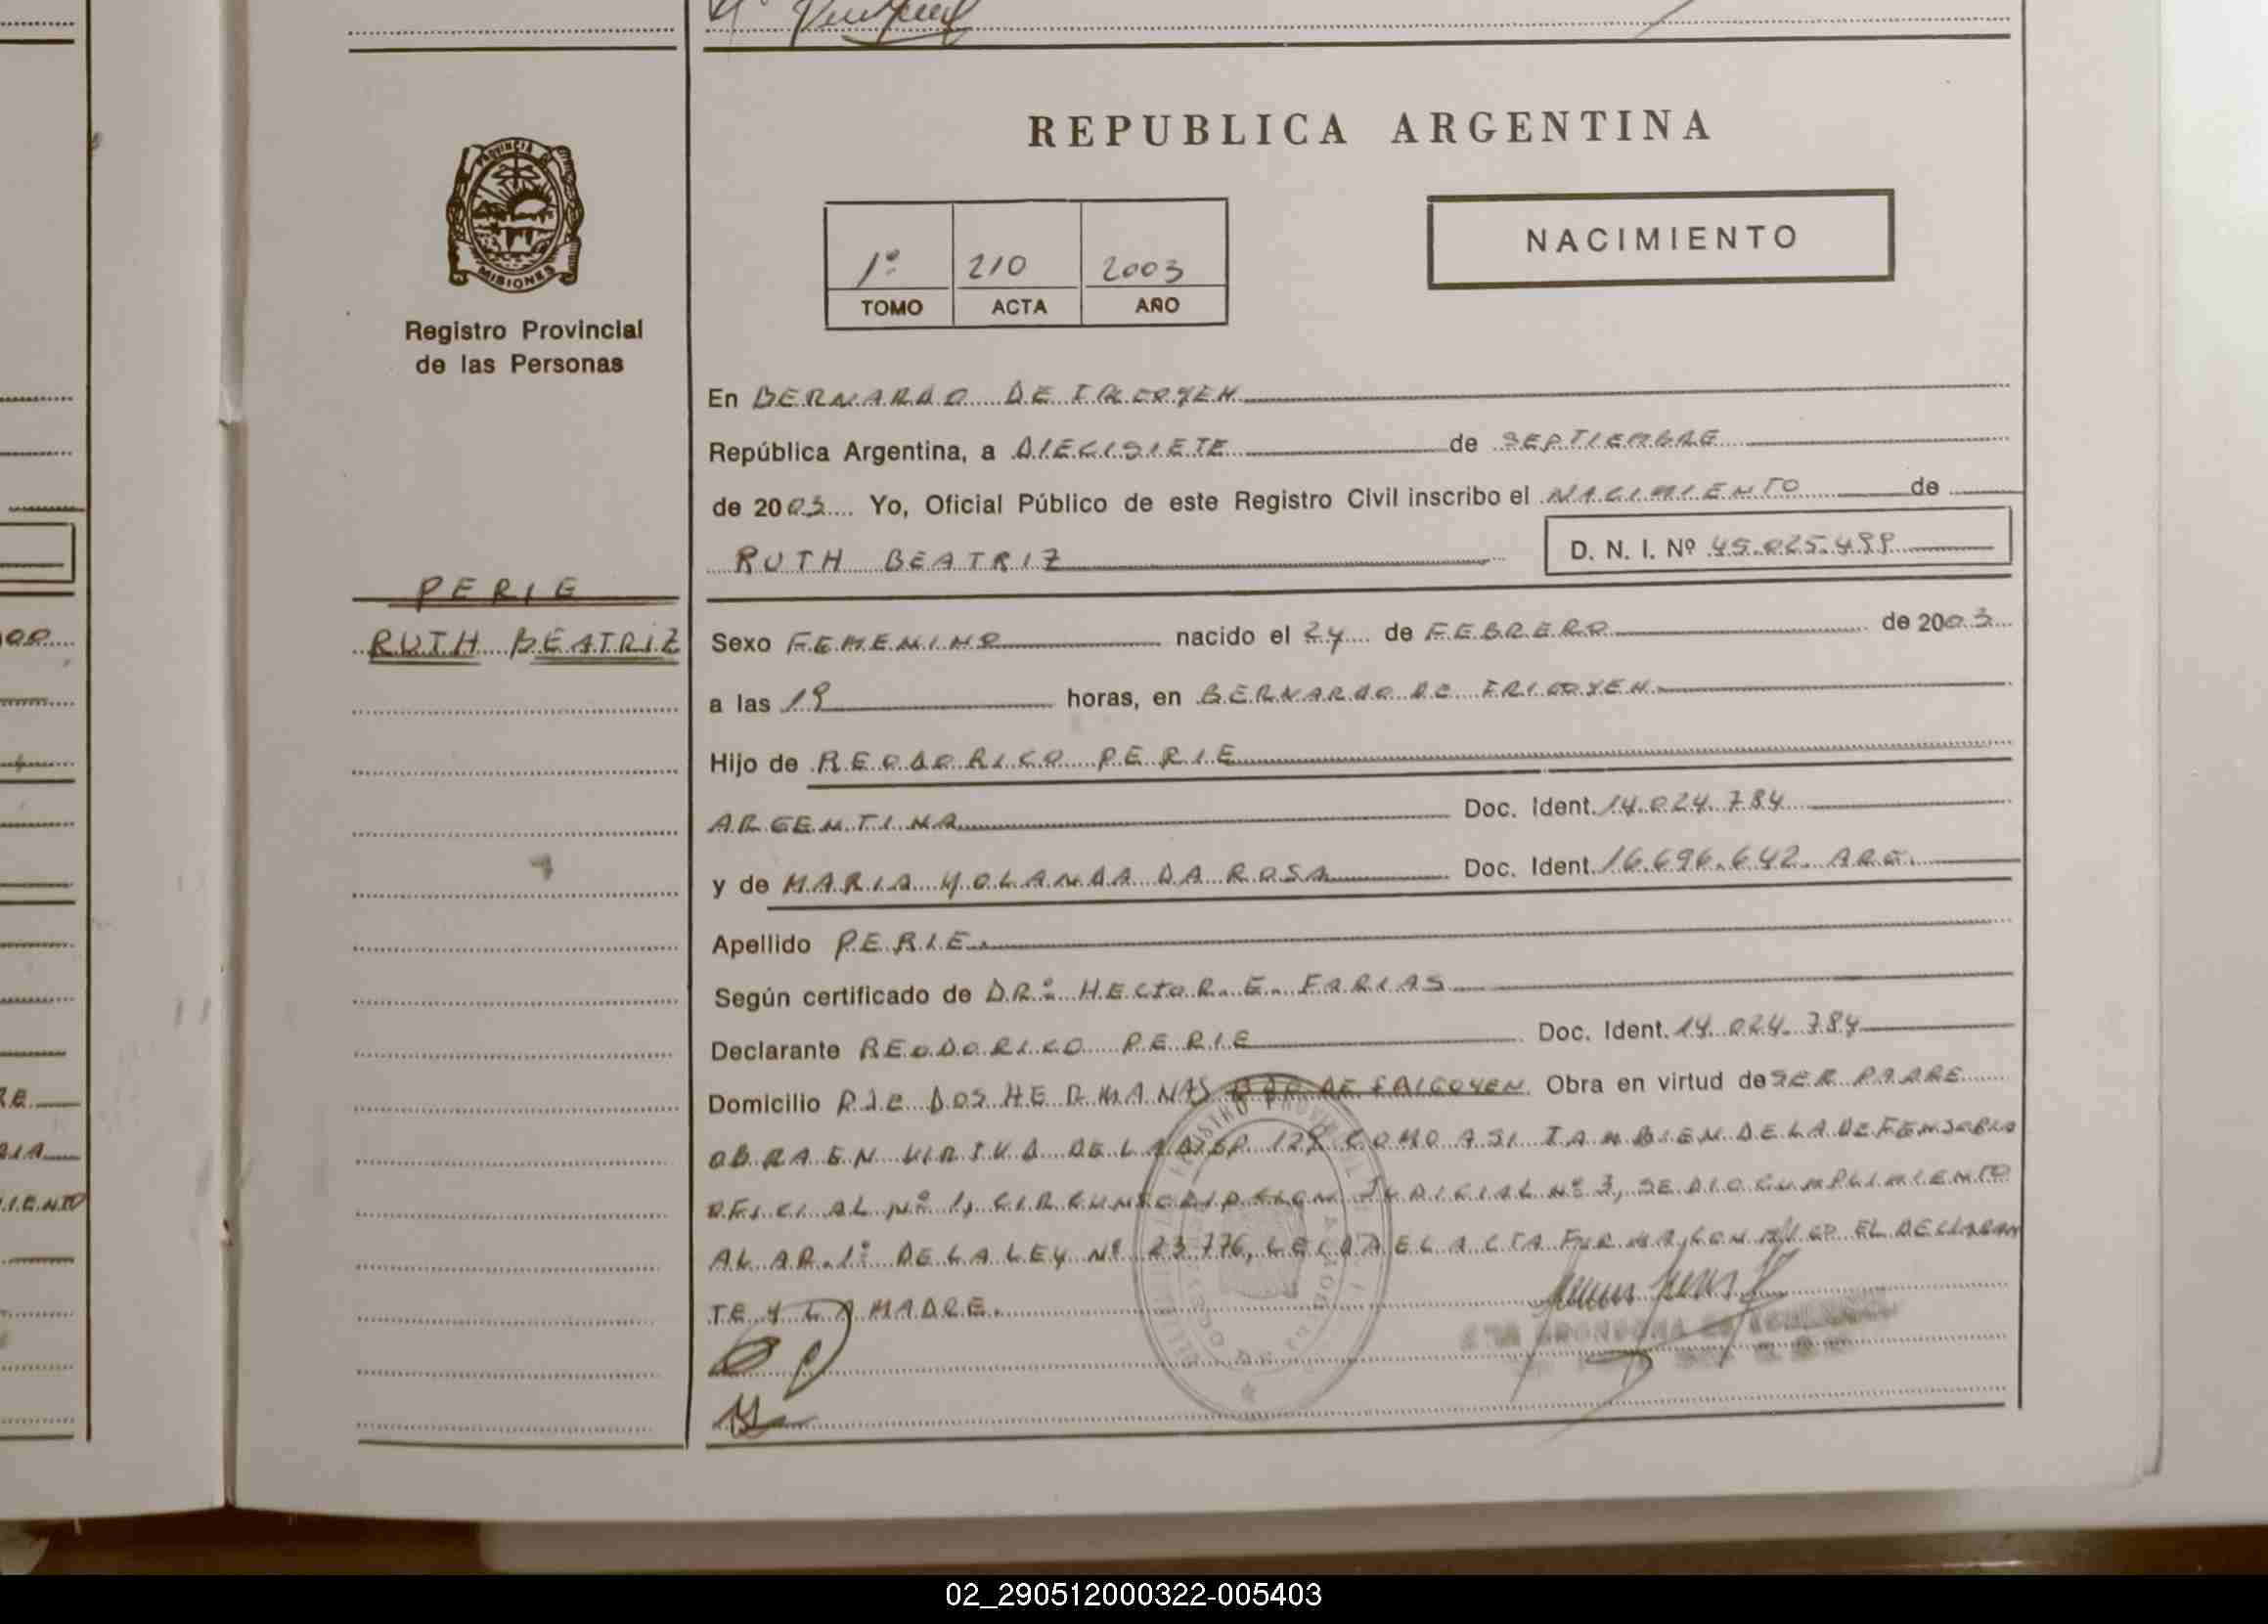 REPUBLICA ARGENTINA
PROVINCIA DE
MISIONES
Registro Provincial
de las Personas
1º 210 2003
TOMO ACTA AÑO
NACIMIENTO
En BERNARDO DE IRIGOYEN
República Argentina, a DIECISIETE de SEPTIEMBRE
de 2003 Yo, Oficial Público de este Registro Civil inscribo el NACIMIENTO de
RUTH BEATRIZ D. N. I. Nº 45.025.499
PERIE
RUTH BEATRIZ
Sexo FEMENINO nacido el 24 de FEBRERO de 2003
a las 19 horas, en BERNARDO DE IRIGOYEN
Hijo de REODORICO PERIE
ARGENTINA Doc. Ident. 14.024.784
y de MARIA YOLANDA DA ROSA Doc. Ident. 16.696.642. ARG.
Apellido PERIE.
Según certificado de DRº HECTOR E. FARIAS
Declarante REODORICO PERIE Doc. Ident. 14.024.784
Domicilio PJE DOS HERMANAS BDO DE IRIGOYEN Obra en virtud de SER PADRE
OBRA EN VIRTUD DE LA DISP. COMO ASI TAMBIEN DE LA DEFENSORIA
OFICIAL Nº 1, CIRCUNSCRIPCION JUDICIAL Nº 3, SE DIO CUMPLIMIENTO
AL AR. 1º DE LA LEY Nº 23.776, LEIDA EL ACTA FIRMA CON EL DECLARAN
TE Y LA MADRE.
02_290512000322-005403